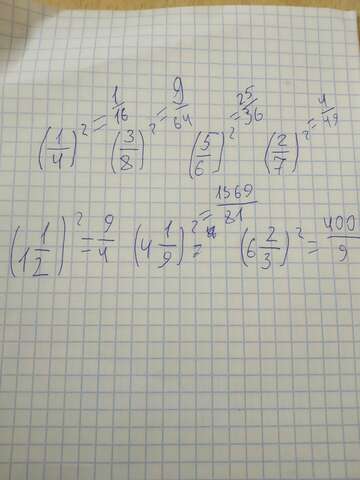 (1/4)² = 1/16 (3/8)² = 9/64 (5/6)² = 25/36 (2/7)² = 4/49
(1 1/2)² = 9/4 (4 1/9)² = 1369/81 (6 2/3)² = 400/9